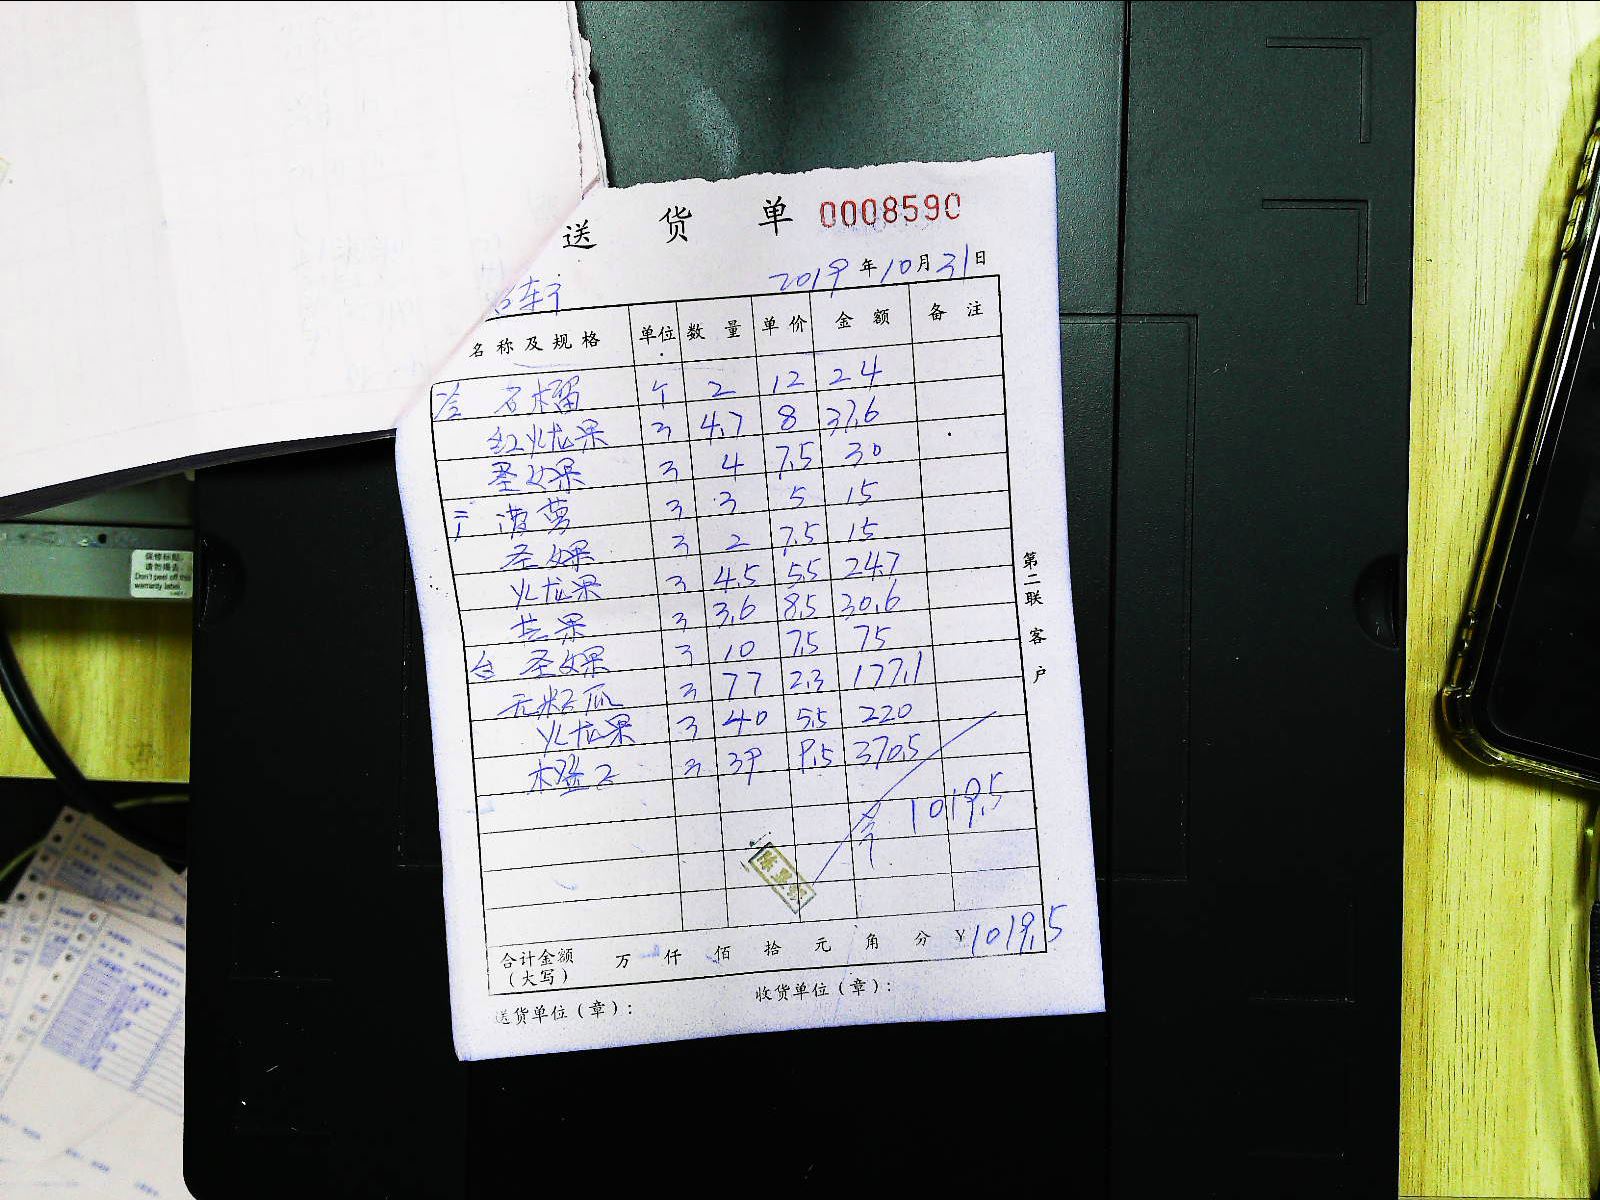 送 货 单 0008590
2019年10月31日
名称及规格 单位 数量 单价 金额 备注
石榴 个 2 12 24
红火龙果 斤 4.7 8 37.6
圣女果 斤 4 7.5 30
菠萝 斤 3 5 15
圣女果 斤 2 7.5 15
火龙果 斤 4.5 5.5 24.7
苹果 斤 3.6 8.5 30.6
台 圣女果 斤 10 7.5 75
无籽瓜 斤 77 2.3 177.1
火龙果 斤 40 5.5 220
斤 39 9.5 370.5
1019.5
合计金额（大写） 万 仟 佰 拾 元 角 分 ¥1019.5
送货单位（章）： 收货单位（章）：
第二联 客户
保修标贴
请勿撕去
Don't peel off
warranty label